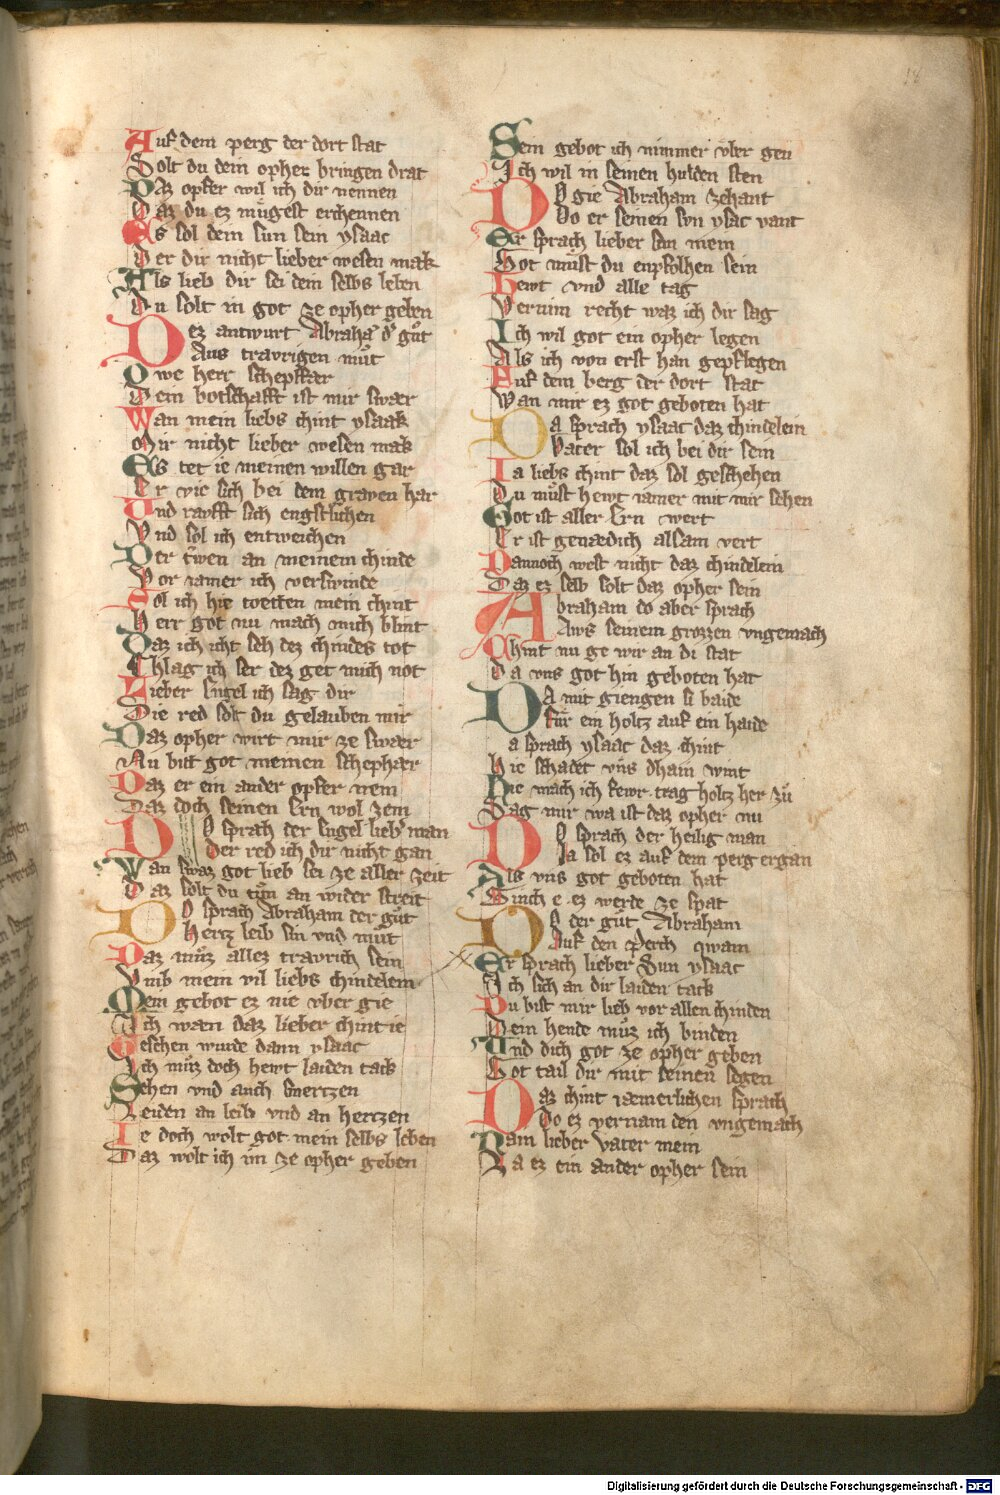 18
Auf dem perg der dort stat
Solt du dein opher bringen drat
Daz opfer wil ich dir nennen
Daz du ez mügest erchennen
Es sol dein sun sein ysaac
Der dir nicht lieber wesen mak
Als lieb dir sei dein selbs leben
Du solt in got ze opher geben
Dez antwurt Abraha der gůt
Aus travrigen můt
Owe herr schepffer
Dein botschafft ist mir swær
Wan mein liebs chint ysaak
Mir nicht lieber wesen mak
Es tet ie meinen willen gar
Er vie sich bei dem graven har
Vnd raufft sich engstlichen
Vnd sol ich entweichen
Der trwen an meinem chinde
Vor iamer ich verswinde
Sol ich hie toetten mein chint
Herr got nu mach mich blint
Daz ich icht seh dez chindes tot
Chlag ich ser dez get mich not
Lieber Engel ich sag dir
Die red solt du gelauben mir
Daz opher wirt mir ze swær
Nu bitt got meinen schephær
Daz er ein ander opfer nem
Daz doch seinen Ern wol zem
Do sprah der Engel lieber man
Der red ich dir nicht gan
Wan swaz got lieb sei ze aller zeit
Daz solt du tůn an wider streit
Do sprach Abraham der gůt
Hertz leib sin vnd můt
Daz můz allez travrich sein
Vmb mein vil liebs chindelein
Mein gebot ez nie vber gie
Ich wan daz lieber chint ie
Geschen wurde dann ysaac
Ich můz doch hewt laiden tack
Sehen vnd auch smertzen
Leiden an leib vnd an hertzen
Ie doch wolt got mein selbs leben
Daz wolt ich im ze opher geben
Sein gebot ich nimmer vber gen
Ich wil in seinen hulden sten
Do gie Abraham zehant
Do er seinen svn ysac vant
Er sprach lieber sun mein
Got můst du enpfolhen sein
Hewt vnd alle tag
Vernim recht waz ich dir sag
Ich wil got ein opher legen
Als ich von erst han gepflegen
Auf dem berg der dort stat
Wan mir ez got geboten hat
Da sprach ysaac daz chindelein
Vater sol ich bei dir sein
Ia liebs chint daz sol geschehen
Du můst hewt iamer mit mir sehen
Got ist aller Ern wert
Er ist genædich alsam vert
Dannoch west nicht daz chindelein
Daz ez selb solt daz opher sein
Abraham do aber sprach
Aws seinem grozzen vngemach
Chint nu ge wir an di stat
Da vns got hin geboten hat
Da mit giengen si baide
Für ein holtz auf ein haide
a sprach ysaac daz chint
Hie schadet vns dhain wint
Hie mach ich fewr trag holtz her zů
Sag mir wa ist daz opher nu
Do sprach der heilig man
Ia sol ez auf dem perg ergan
Als vns got geboten hat
Sinch e ez werde ze spat
Do der gůt Abraham
Auf den perch qwam
Er sprach lieber Sun ysaac
Ich sich an dir laiden tack
Du bist mir lieb vor allen chinden
Dein hende můz ich binden
Vnd dich got ze opher geben
Got tail dir mit seinen segen
Daz chint iæmerlichen sprach
Do ez vernam den vngemach
Nain lieber vater mein
La ez ein ander opher sein
Digitalisierung gefördert durch die Deutsche Forschungsgemeinschaft - DFG